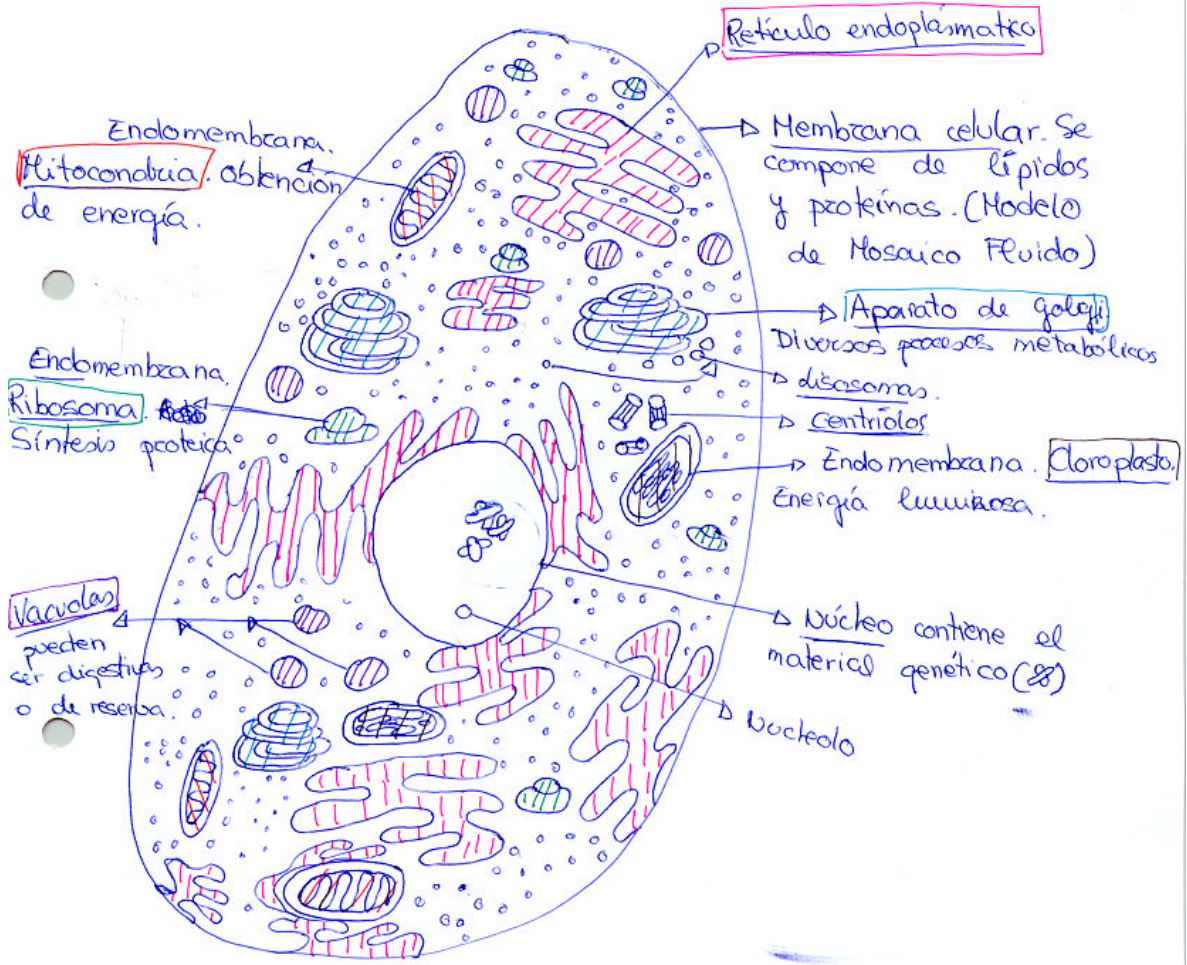 Retículo endoplásmatico
Endomembrana.
Mitocondria. obtención
de energía.
Membrana celular. Se
compone de lípidos
y proteínas. (Modelo
de Mosaico Fluido)
Aparato de Golgi
Diversos procesos metabólicos
Endomembrana.
Ribosoma.
Síntesis proteica
lisosomas.
centriolos
Endomembrana. Cloroplasto.
Energía luminosa.
Vacuolas
pueden
ser digestivas
o de reserva.
Núcleo contiene el
material genético
Nucleolo